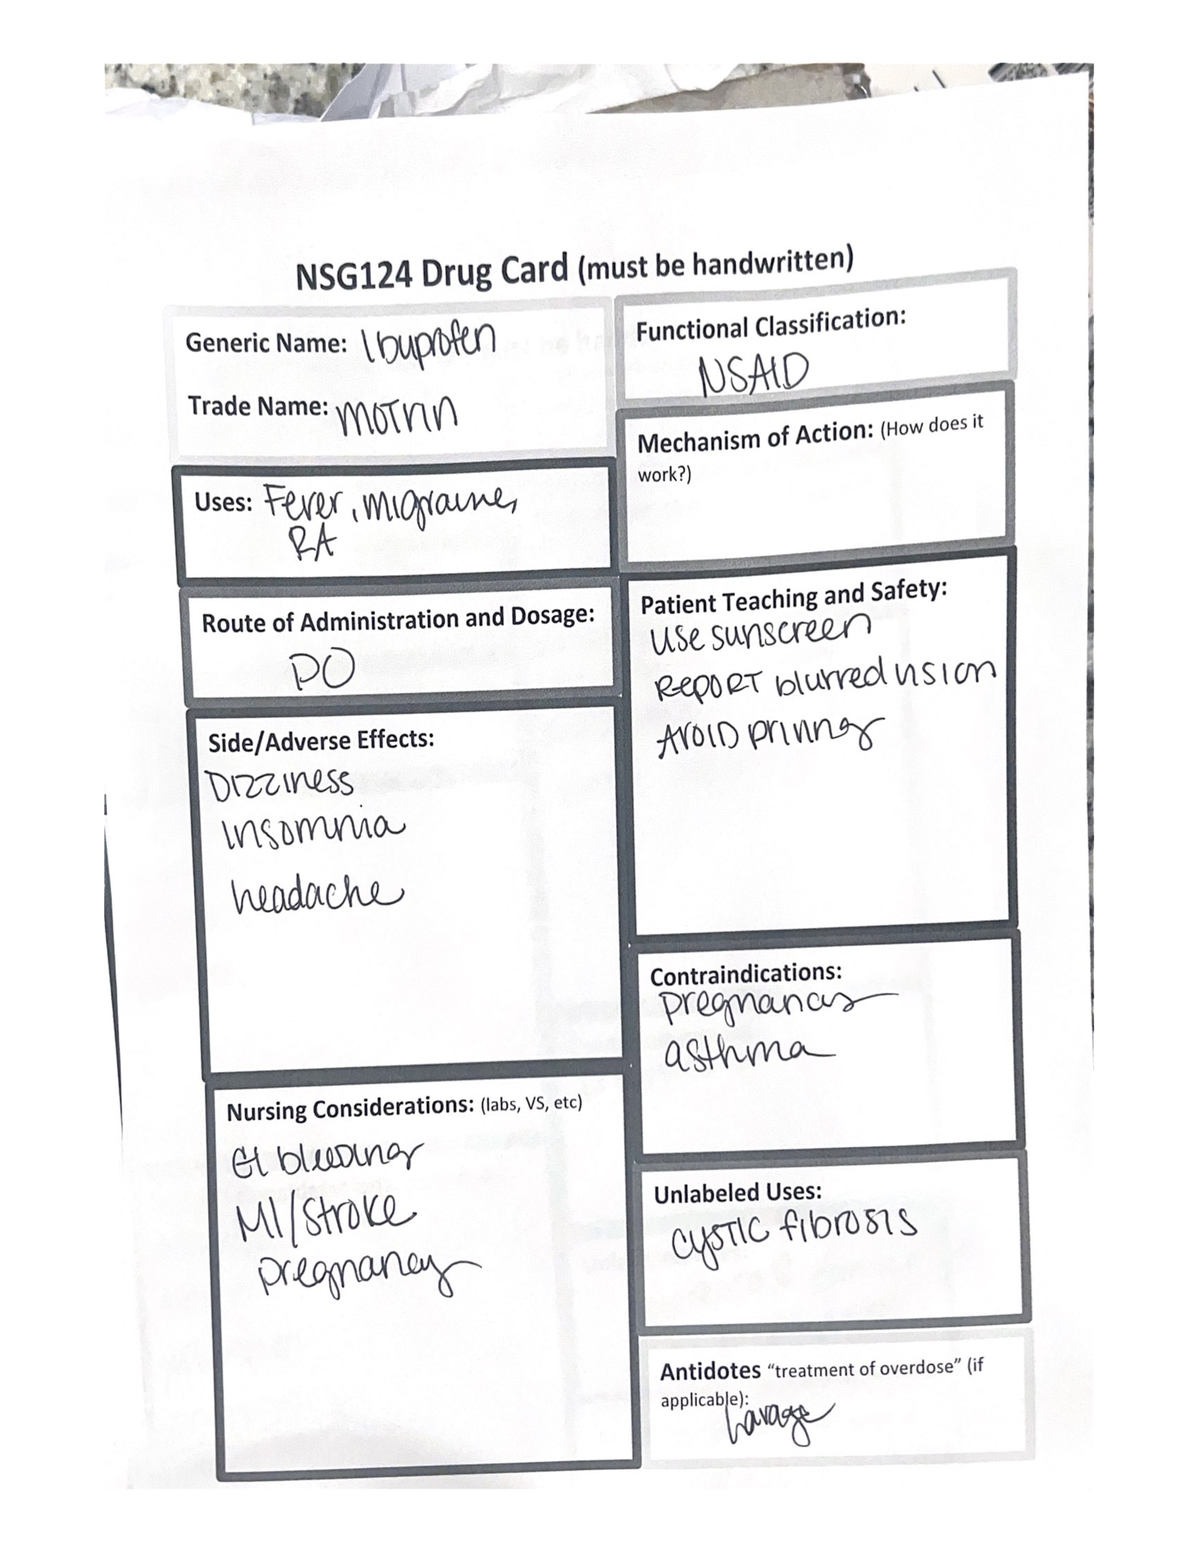 NSG124 Drug Card (must be handwritten)
Generic Name: Ibuprofen
Trade Name: Motrin
Uses: Fever, migraine,
RA
Route of Administration and Dosage:
PO
Side/Adverse Effects:
Dizziness
Insomnia
headache
Nursing Considerations: (labs, VS, etc)
GI bleeding
MI/Stroke
pregnancy
Functional Classification:
NSAID
Mechanism of Action: (How does it
work?)
Patient Teaching and Safety:
Use sunscreen
Report blurred vision
Avoid
Contraindications:
pregnancy
asthma
Unlabeled Uses:
cystic fibrosis
Antidotes “treatment of overdose” (if
applicable):
Lavage